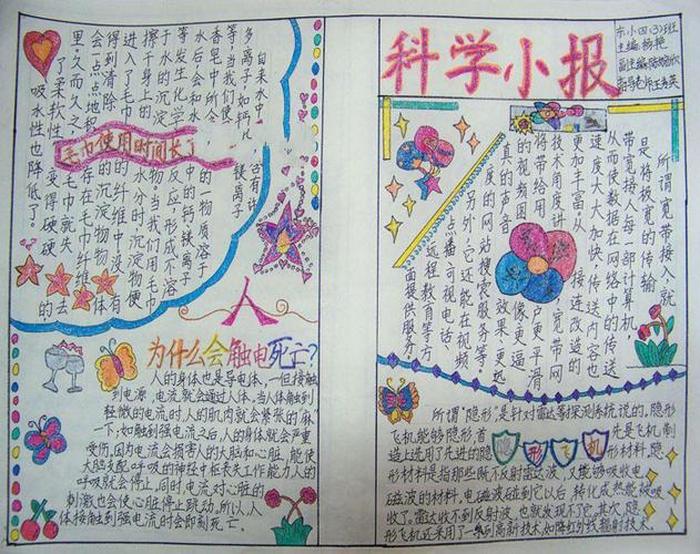 科学小报
东小四(3)班
主编:杨艳
自来水中含有许
多离子,如钙化镁离子
等,当我们使
香皂中所含的一物质溶于
水后,会和水中的钙镁离子
等发生化学反应,形成不溶
于水的沉淀物。当我们用毛巾
擦干身上的水分时,沉淀物便
进入了毛巾的纤维中,没有
得到清除的沉淀物物体
会一点点地积存在毛巾纤维
里,久而久之,毛巾就失去
了柔软性,变得硬硬
吸水性也降低了。
毛巾使用时间长了
人
为什么会触电死亡?
人的身体也是导电体,一但接触
到电源,电流就会通过人体,当人体触到
轻微的电流时,人的肌肉就会紧张的"麻"
一下;如触到强电流之后,人的身体就会严重
受伤,因为电流会损害人的大脑和心脏,能使
大脑支配呼吸的神经中枢丧失工作能力人的
呼吸就会停止,同时电流对心脏的
刺激也会使心脏停止跳动,所以,人
体接触到强电流时会即刻死亡。
所谓宽带接入,就
是将极宽的传输
带宽接入每一部计算机,
从而使数据在网络中的传送
速度大大加快,传送内容也
更加丰富。从接连改造的
技术角度讲宽带网
将带给用户更平滑
的视频图像更逼
真的声音效果更远
度的网站搜索服务等。
另外,它还能在视频
点播可视电话、
远程教育等方
面提供服务。
隐形飞机
所谓"隐形"是针对雷达等探测系统说的,隐形
飞机能够隐形,首先是飞机制
造上选用了先进的隐形材料,隐
形材料是指那些既不反射雷达波,又能够吸收电
磁波的材料,电磁波碰到它以后,转化成热能被吸
收了。雷达收不到反射波,也就发现不了它,其次,隐
形飞机还采用了一系列高新技术,如降红外线辐射技术。